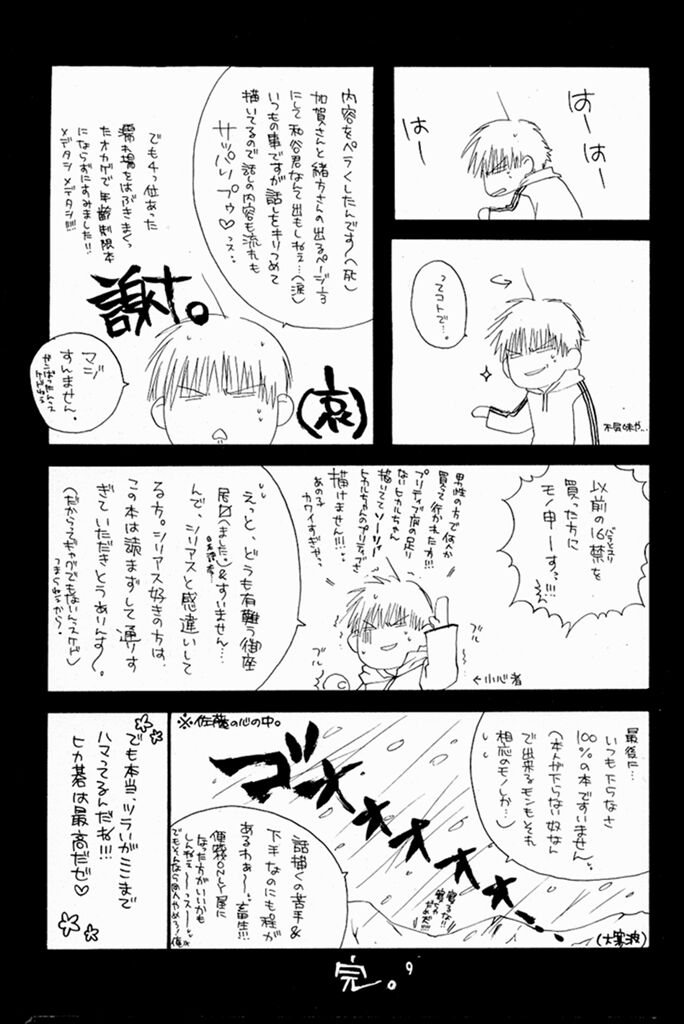 はーはー
はー
ってコトで…。
不気味や…
内容をペラくしたんです〜(死)
加賀さんと緒方さんの出るページ1/3
にして和谷君なんて出もしねぇ…(涙)
いつもの事ですが話しをキリつめて
描いてるので話しの内容も流れも
サッパリプゥ♡っス…
でも4つ位あった
濡れ場をはぶきまくっ
たオカゲで年齢制限本
にならずにすみました!!
メデタシメデタシ!!!!
謝。
(哀)
マジ
すんません。
がんばったんっス
けどねぇ
以前の16禁を
買った方に
モノ申ーすっ!!!
男性の方で何人か
買って行かれたか!!!
プリティブ度の足り
ないヒカルちゃん
描いててソーリー
ヒカルちゃんのプリティブさ
描けません!!!…
あの子
カワイすぎや…
ブル
ブル
←小心者
えっと、どうも有難う御座
居〼(ました。)&すいません…
んで、シリアスと感違いして
る方。シリアス好きの方は、
この本は読まずして通りす
ぎていただきとうありんす〜。
(だからってギャグでもないんっスケど)
つまらねぇから。
最後に…
いつも下らなさ
100%の本ですいません。
(本人が下らない奴なん
で出来るモンもそれ
相応のモノしか…)
※佐藤の心の中。
ゴオオオオオオ…
寝るな!!
(大寒波)
話描くの苦手&
下手なのにも程が
あるわぁ〜、畜生!!!
便箋ONLY屋に
なった方がいいかも
しんねぇ〜〜っス〜。
でも本当、ツラいがここまで
ハマってるんだね!!!
ヒカ碁は最高だぜ♡
完。
9